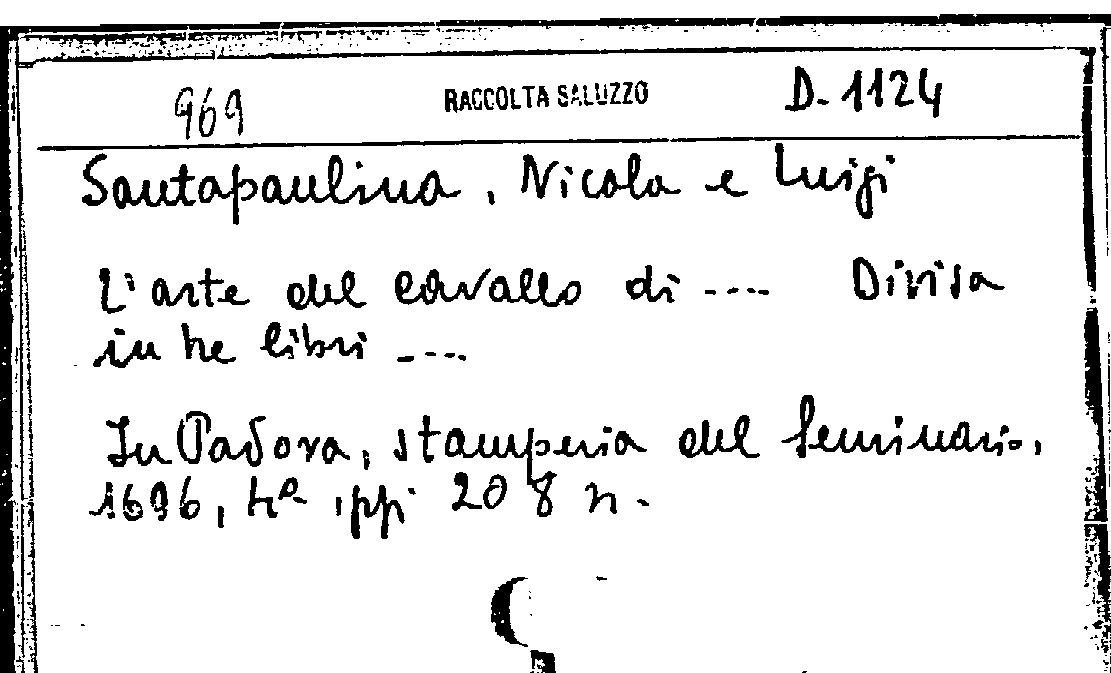 969 RACCOLTA SALUZZO D. 1124
Santapaulina, Nicola e Luigi
L'arte del cavallo di .... Divisa
in tre libri ....
In Padova, stamperia del Seminario,
1696, 4º, pp. 208 n.